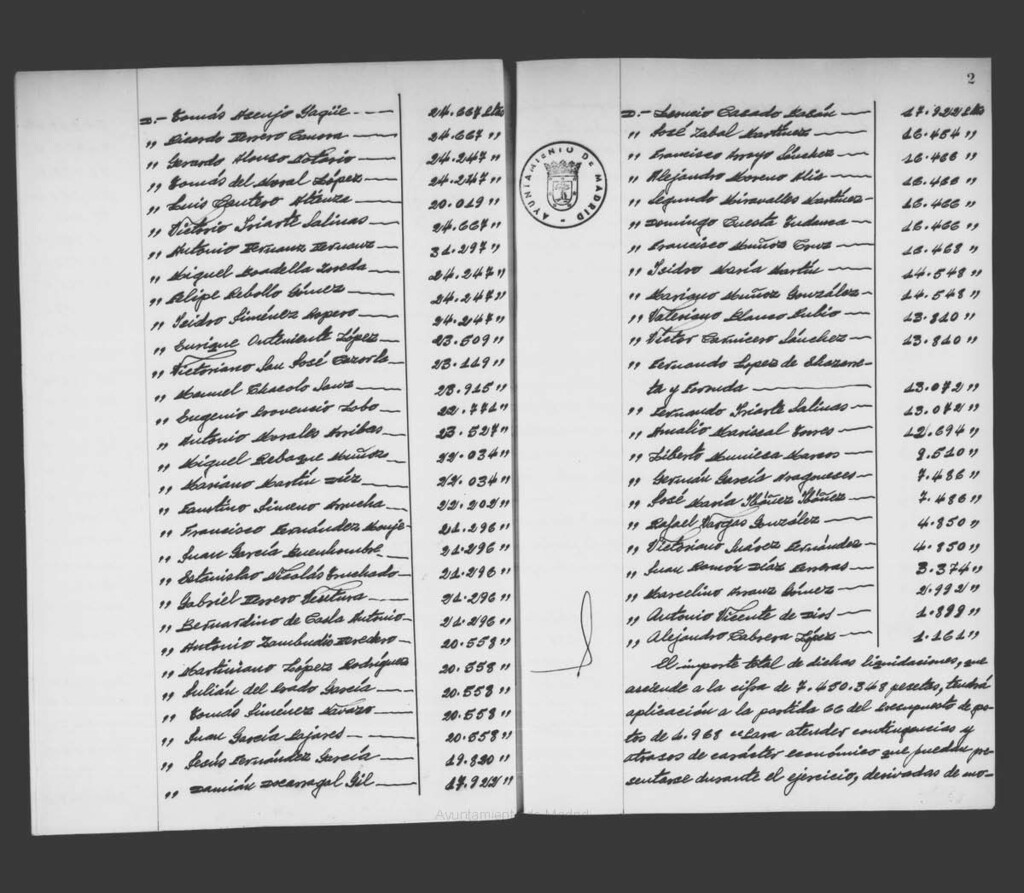 D.- Tomás Asenjo Yagüe 24.667 Ptas
" Ricardo Herrero 24.667 "
" Gerardo Alonso 24.247 "
" Tomás del Moral López 24.247 "
" Luis Cantero Atienza 20.019 "
" Victorio Iriarte Salinas 24.667 "
" Antonio Hernanz Hernanz 31.297 "
" Miguel 24.247 "
" Felipe Rebollo Gómez 24.247 "
" Isidro Jiménez Ampero 24.247 "
" Enrique Onteniente López 23.509 "
" Victoriano San José Cazorla 23.119 "
" Manuel Chacolo Sanz 23.915 "
" Eugenio Provencio Lobo 22.771 "
" Antonio Morales Arribas 23.527 "
" Miguel Rebaque Muñoz 22.034 "
" Mariano Martín Díez 22.034 "
" Faustino Jimeno 22.202 "
" Francisco Fernández Monje 21.296 "
" Juan García 21.296 "
" Estanislao Nicolás Truchado 21.296 "
" Gabriel Herrero Ventura 21.296 "
" Bernardino de Casla Antonio 21.296 "
" Antonio Zambudio 20.558 "
" Martiniano López Rodríguez 20.558 "
" Julián del Prado García 20.558 "
" Tomás Jiménez Navazo 20.558 "
" Juan García Pajares 20.558 "
" Jesús Fernández García 19.820 "
" Damián Gil 17.922 "
2
D.- Casado 17.922 Ptas
" José Zabal Martínez 16.484 "
" Francisco Arroyo Sánchez 16.466 "
" Alejandro Moreno 16.466 "
" Segundo Miravalles Martínez 16.466 "
" Domingo Cuesta Tudanca 16.466 "
" Francisco Muñoz Cruz 16.468 "
" Isidro María Martín 14.548 "
" Mariano Muñoz González 14.548 "
" Valeriano Blanco Rubio 13.810 "
" Víctor Carnicero Sánchez 13.810 "
" Fernando Lopez de
ta y 13.072 "
" Fernando Iriarte Salinas 13.072 "
" Amalio Mariscal Torres 12.694 "
" Liberto Muniesa Marcos 9.510 "
" Germán García Aragoneses 7.486 "
" José María Ibáñez Ibáñez 7.486 "
" Rafael Vargas González 4.850 "
" Victoriano Suárez Fernández 4.850 "
" Juan Ramón Díaz 3.374 "
" Marcelino Arranz Gómez 2.992 "
" Antonio Vicente de Dios 1.899 "
" Alejandro Cabrera López 1.161 "
El importe total de dichas liquidaciones, que
asciende a la cifra de 7.450.348 pesetas, tendrá
aplicación a la partida 66 del Presupuesto de gas-
tos de 1.968 "Para atender contingencias y
atrasos de carácter económico que puedan pre
sentarse durante el ejercicio, derivadas de mo-
AYUNTAMIENTO DE MADRID
Ayuntamiento de Madrid